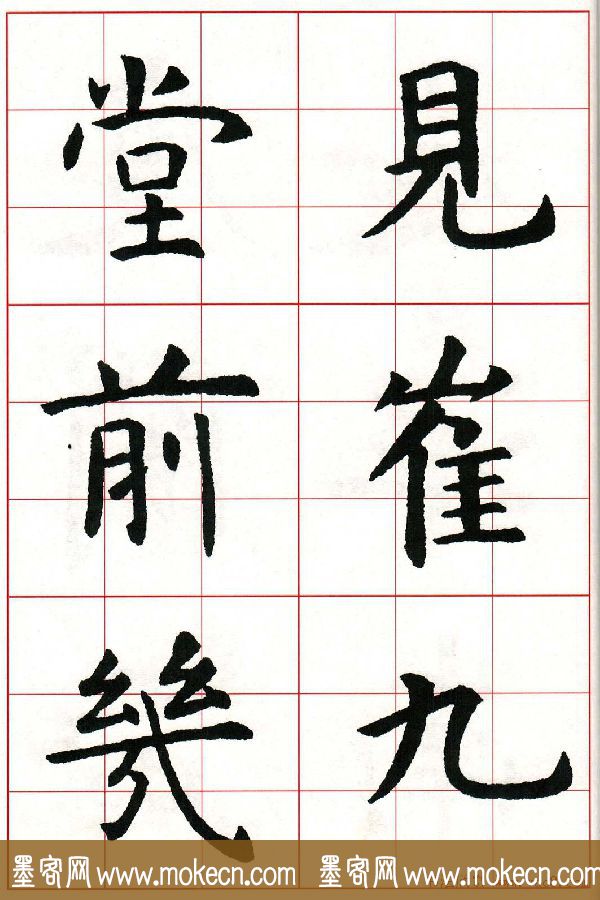 見崔九
堂前幾
墨客网 www.mokecn.com 墨客网 www.mokecn.com